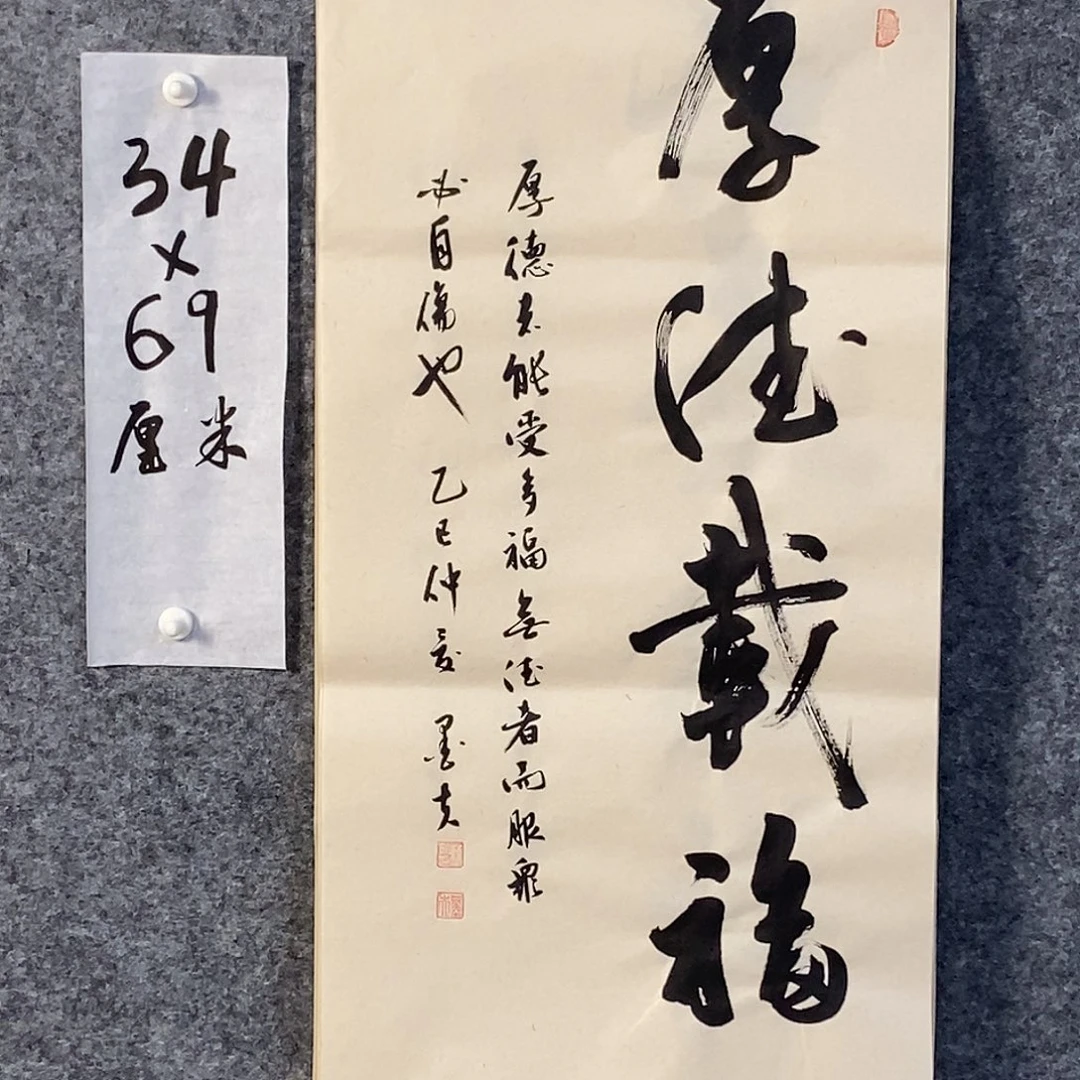 34
×
69
厘米
厚德載福
厚德者能受多福無德者而服眾
必自傷也 乙巳仲夏 墨